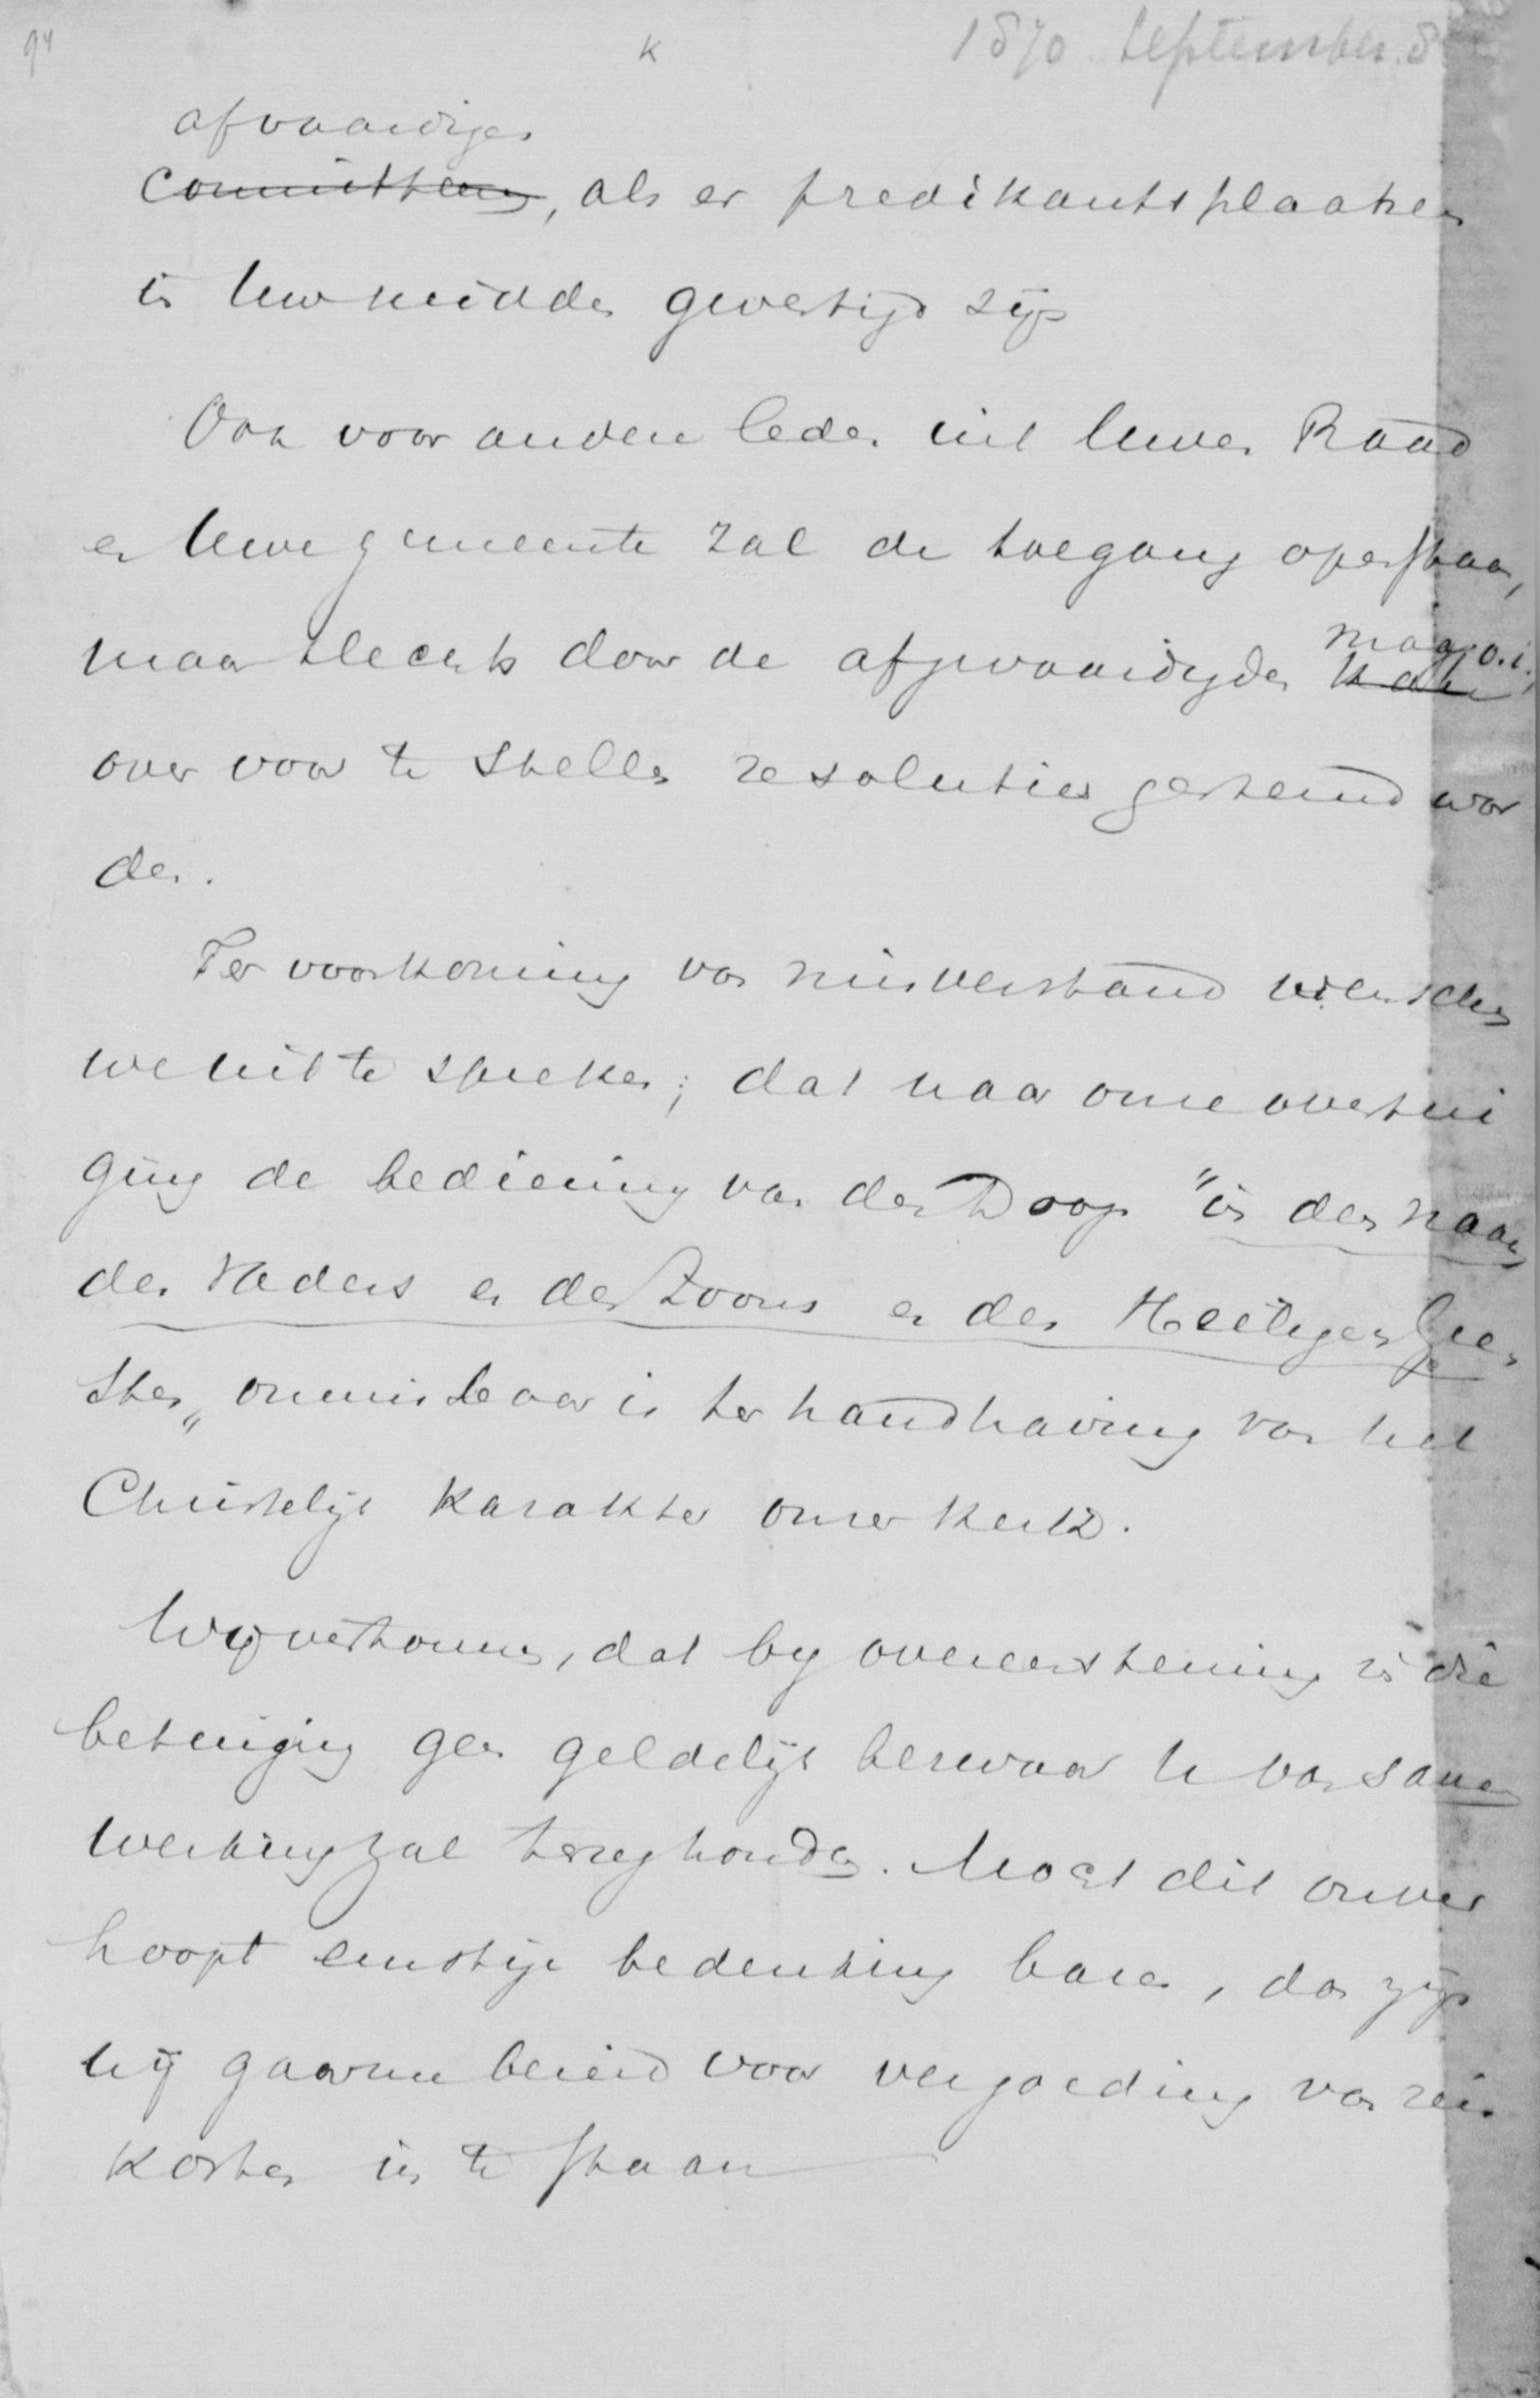 94 K 1870 September. 8
afvaardigen
committeeren, als er predikantsplaatsen
in Uw midden gevestigd zijn
Ook voor andere leden uit Uwen Raad
en Uwe gemeente zal de toegang openstaan,
mag o.i.
maar slechts door de afgevaardigden kan
over voor te stellen resolutien gestemd wor
den.
Ter voorkoming van misverstand wenschen
we uit te spreken; dat naar onze overtui
ging de bediening van den Doop "in den naam
des Vaders en des Zoons en des Heiligen Gees
tes„ onmisbaar is ter handhaving van het
Christelijk karakter onzer kerk.
Wij vertrouwen, dat bij overeenstemming in die
betuiging geen geldelijk bezwaar U van samen
werking zal terughouden. Mocht dit onver
hoopt ernstige bedenking baren, dan zijn
wij gaarne bereid voor vergoeding van reis
kosten in te staan